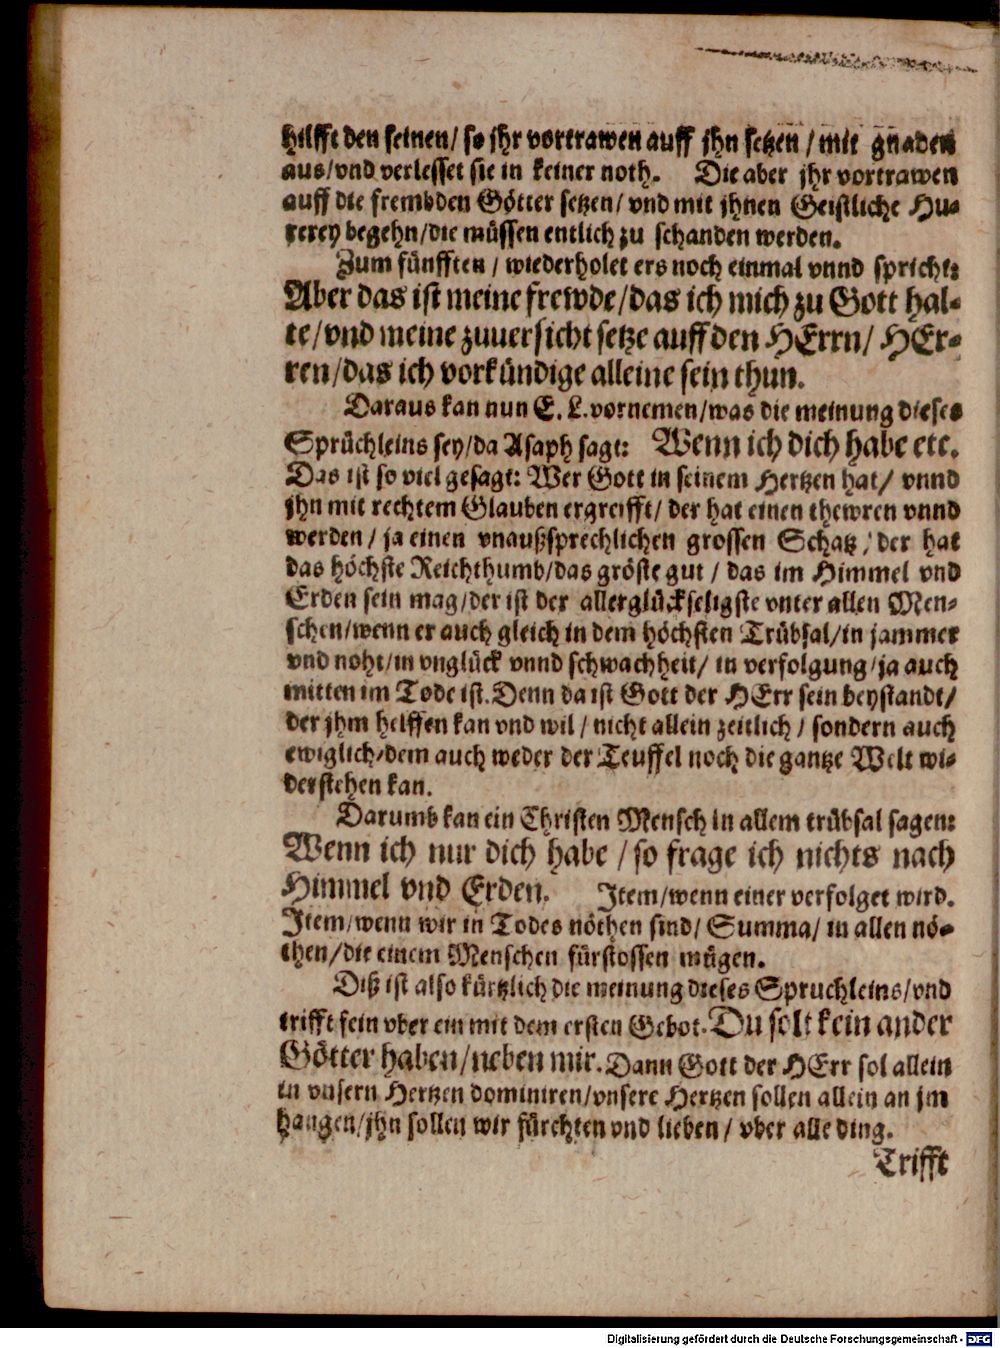 hilfft den seinen/ so jhr vortrawen auff jhn setzen / mit gnaden
aus/vnd verlesset sie in keiner noth. Die aber jhr vortrawen
auff die frembden Götter setzen/ vnd mit jhnen Geistliche Hu-
rerey begehn/die müssen entlich zu schanden werden.
Zum fünfften / wiederholet ers noch einmal vnnd spricht:
Aber das ist meine frewde/das ich mich zu Gott hal-
te/vnd meine zuuersicht setze auff den HErrn/ HEr-
ren/das ich vorkündige alleine sein thun.
Daraus kan nun E. L. vornemen/was die meinung dieses
Sprüchleins sey/da Asaph sagt: Wenn ich dich habe etc.
Das ist so viel gesagt: Wer Gott in seinem Hertzen hat/ vnnd
jhn mit rechtem Glauben ergreifft/ der hat einen thewren vnnd
werden / ja einen vnaußsprechlichen grossen Schatz / der hat
das höchste Reichthumb/das gröste gut / das im Himmel vnd
Erden sein mag/der ist der allerglückseligste vnter allen Men-
schen/wenn er auch gleich in dem höchsten Trübsal/in jammer
vnd noht/in vnglück vnnd schwachheit/ in verfolgung/ja auch
mitten im Tode ist. Denn da ist Gott der HErr sein beystandt/
der jhm helffen kan vnd wil / nicht allein zeitlich / sondern auch
ewiglich/dem auch weder der Teuffel noch die gantze Welt wi-
derstehen kan.
Darumb kan ein Christen Mensch in allem trübsal sagen:
Wenn ich nur dich habe / so frage ich nichts nach
Himmel vnd Erden. Item/wenn einer verfolget wird.
Item/wenn wir in Todes nöthen sind/ Summa/ in allen nö-
then/die einem Menschen fürstossen mügen.
Diß ist also kürtzlich die meinung dieses Spruchleins/vnd
trifft fein vber ein mit dem ersten Gebot. Du solt kein ander
Götter haben/neben mir. Dann Gott der HErr sol allein
in vnsern Hertzen dominiren/vnsere Hertzen sollen allein an jm
hangen/jhn sollen wir fürchten vnd lieben / vber alle ding.
Trifft
Digitalisierung gefördert durch die Deutsche Forschungsgemeinschaft - DFG